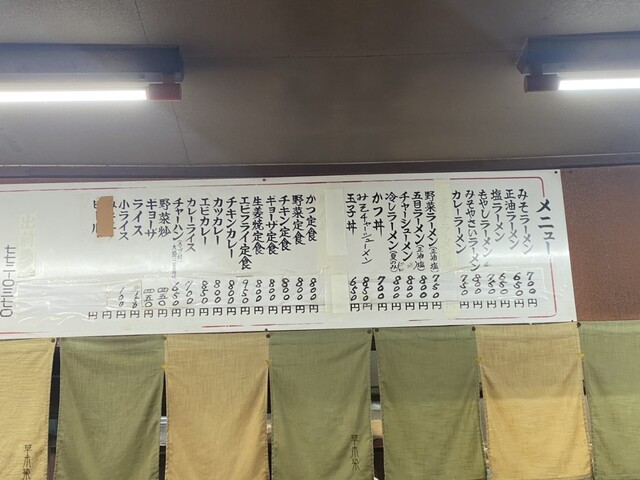 メニュー
みそラーメン 700円
正油ラーメン 650円
塩ラーメン 650円
もやしラーメン 750円
みそやさいラーメン 800円
カレーラーメン 850円
野菜ラーメン(正油・塩) 750円
五目ラーメン(正油・塩) 800円
チャーシューメン 800円
冷しラーメン(夏のみ) 800円
かつ丼 700円
みそチャーシューメン 850円
玉子丼 650円
かつ定食 800円
野菜定食 800円
チキン定食 800円
キョーザ定食 800円
生姜焼定食 800円
エビフライ定食 950円
チキンカレー 800円
カツカレー 800円
エビカレー 850円
カレーライス 700円
チャーハン 650円
野菜炒 450円
キョーザ 450円
ライス 円
小ライス 100円
円
ビール 円